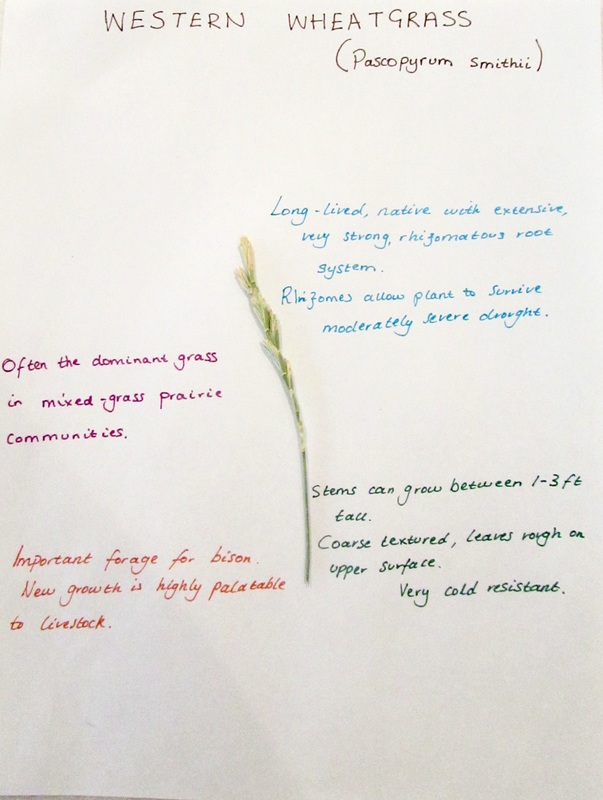 WESTERN WHEATGRASS
(Pascopyrum smithii)
Long-lived, native with extensive,
very strong, rhizomatous root
system.
Rhizomes allow plant to survive
moderately severe drought.
Often the dominant grass
in mixed-grass prairie
communities.
Stems can grow between 1-3 ft
tall.
Coarse textured, leaves rough on
upper surface.
Very cold resistant.
Important forage for bison.
New growth is highly palatable
to livestock.